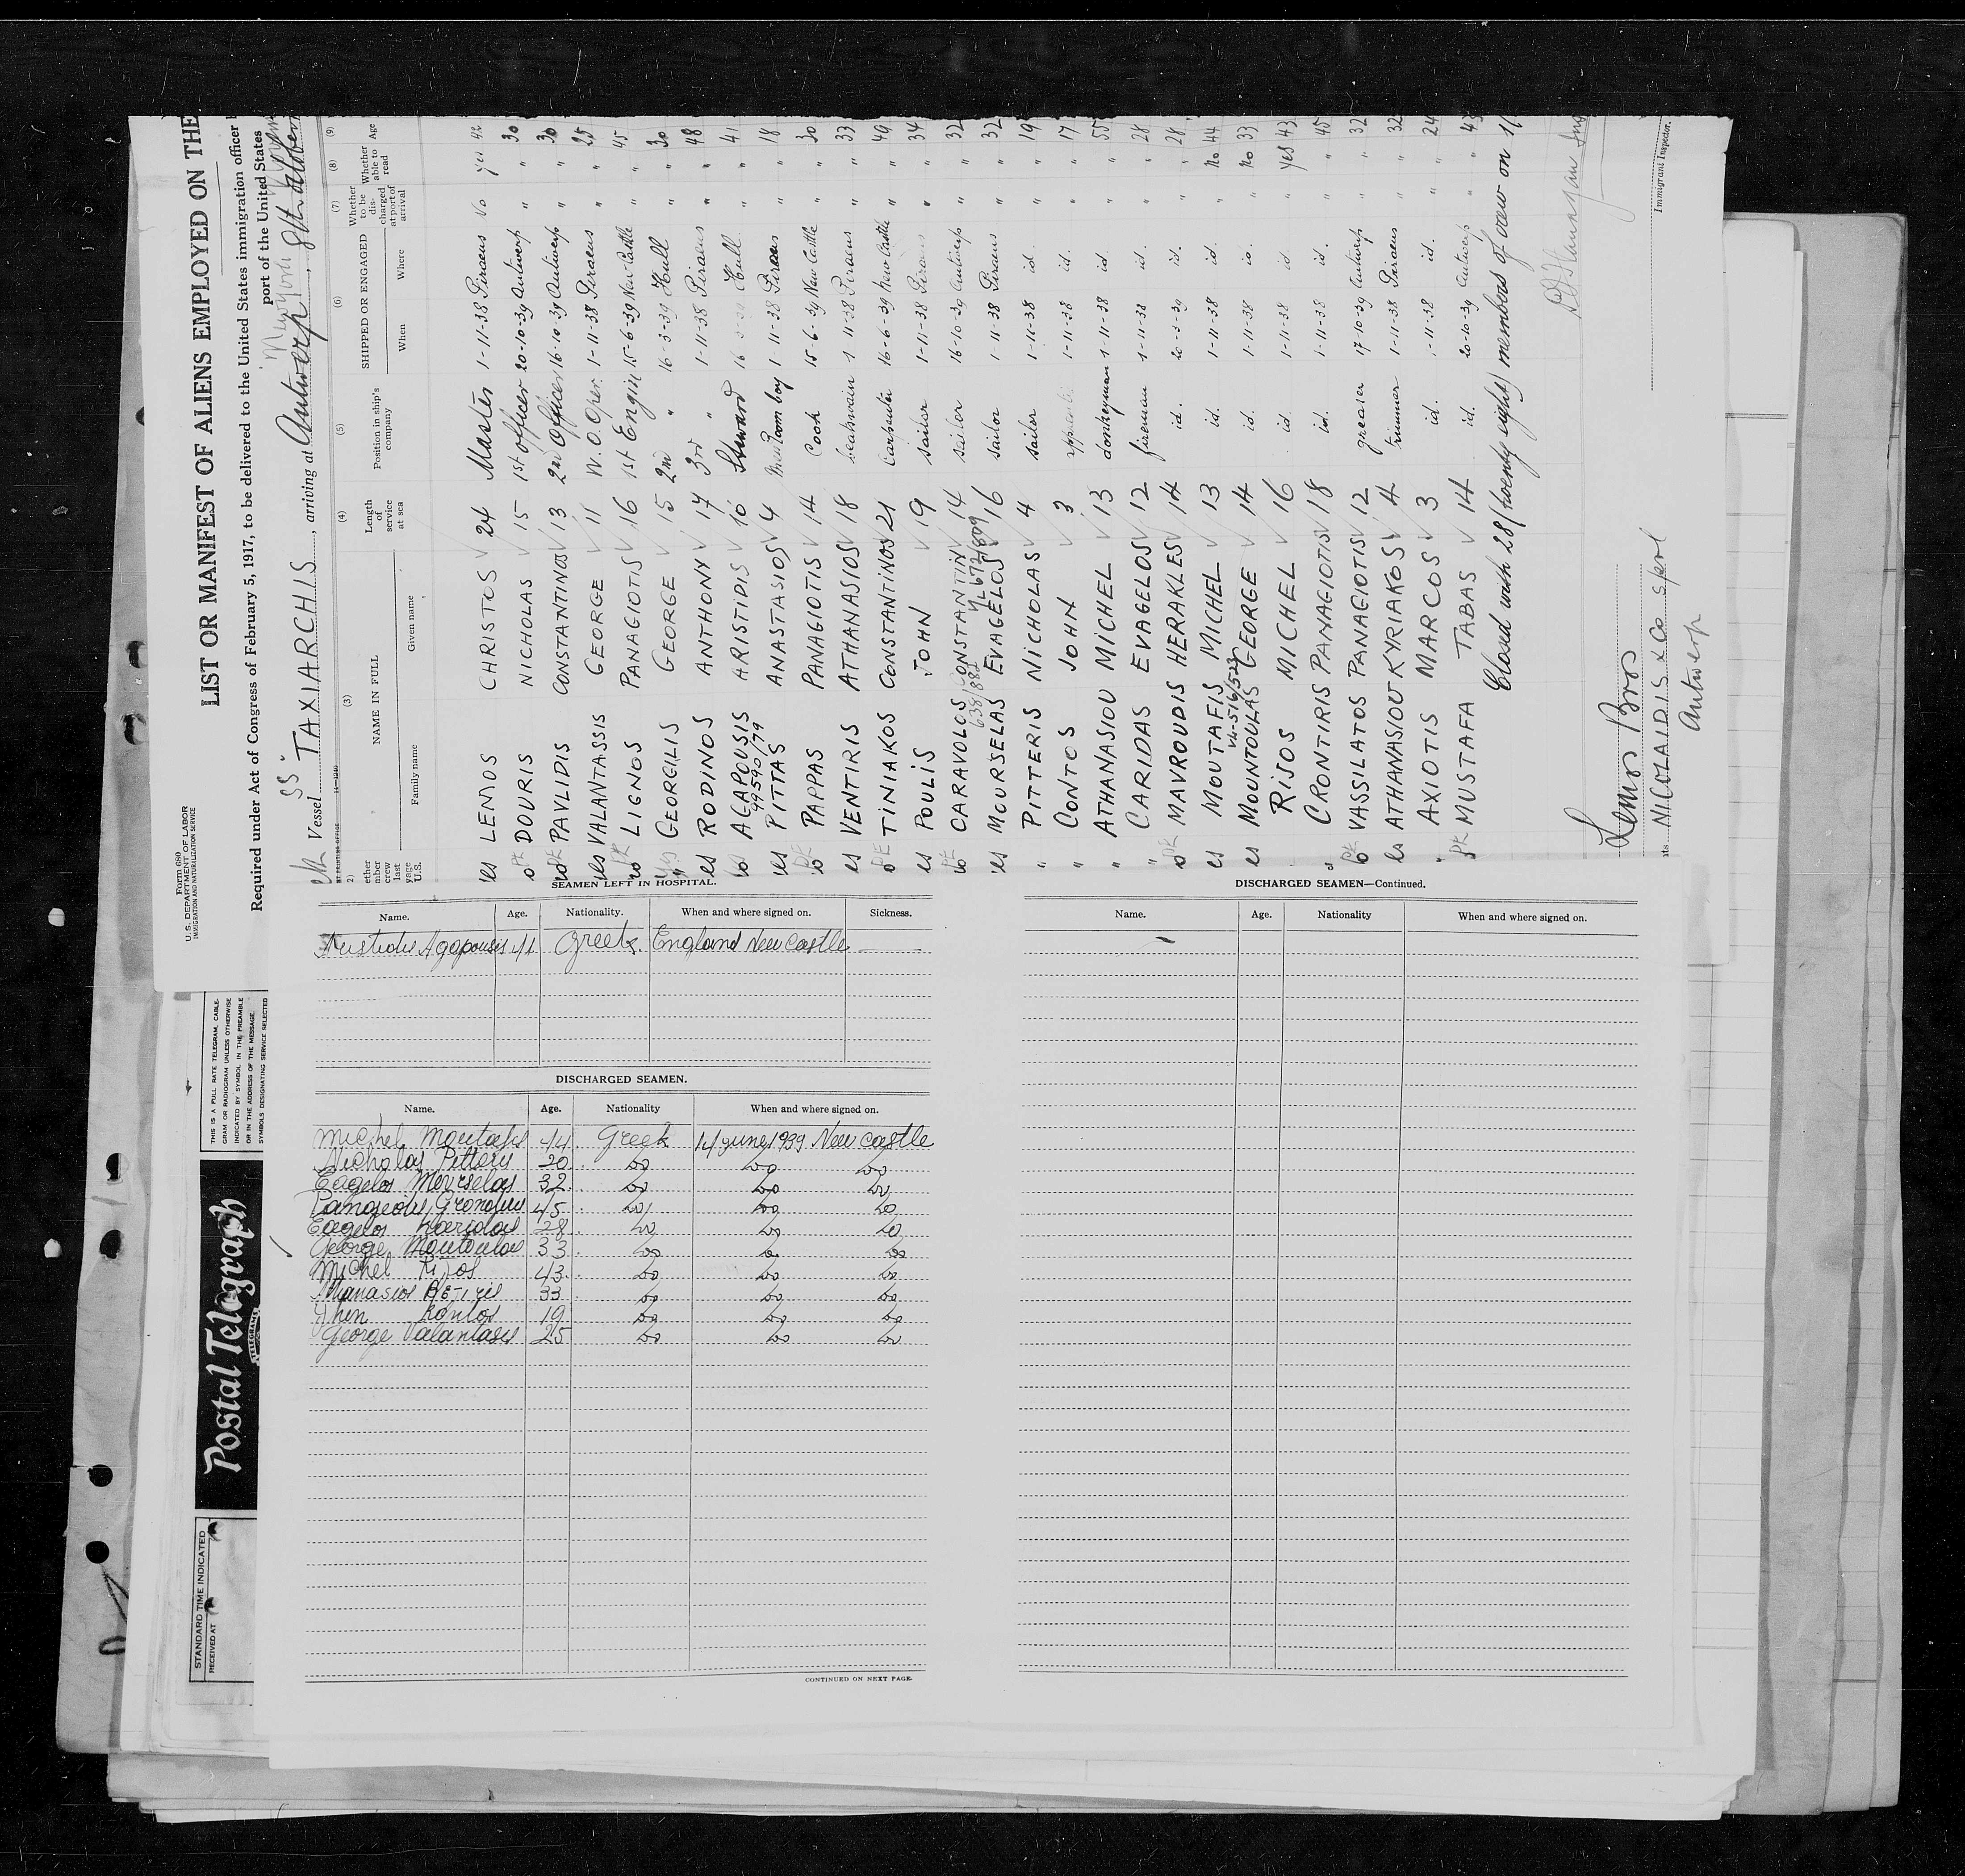 Form 680
U. S. DEPARTMENT OF LABOR
IMMIGRATION AND NATURALIZATION SERVICE
LIST OR MANIFEST OF ALIENS EMPLOYED ON THE
Required under Act of Congress of February 5, 1917, to be delivered to the United States immigration officer
port of the United States
Vessel SS. TAXIARCHIS, arriving at Antwerp
New York
(3) (4) (5) (6) (7) (8) (9)
NAME IN FULL Length of service at sea Position in ship's company SHIPPED OR ENGAGED Whether to be discharged at port of arrival Whether able to read Age
Family name Given name When Where
LEMOS CHRISTOS 24 Master 1-11-38 Piraeus No yes 42
DOURIS NICHOLAS 15 1st officer 20-10-39 Antwerp " " 30
PAVLIDIS CONSTANTINOS 13 2nd Officer 16-10-39 Antwerp " " 30
VALANTASSIS GEORGE 11 W. O. Oper. 1-11-38 Piraeus " " 25
LIGNOS PANAGIOTIS 16 1st Engin 15-6-39 New-Castle " " 45
GEORGILIS GEORGE 15 2nd " 16-3-39 Hull " " 30
RODINOS ANTHONY 17 3rd " 1-11-38 Piraeus " " 48
AGAPOUSIS ARISTIDIS 10 Steward Hull " " 41
99590/79
PITTAS ANASTASIOS 4 Mess Room boy 1-11-38 Piraeus " " 18
PAPPAS PANAGIOTIS 14 Cook 15-6-39 New Castle " " 30
VENTIRIS ATHANASIOS 18 boatswain 1-11-38 Piraeus " " 33
TINIAKOS CONSTANTINOS 21 Carpenter 16-6-39 New Castle " " 49
POULIS JOHN 19 sailor 1-11-38 Piraeus " " 34
CARAVOLOS CONSTANTIN 14 sailor 16-10-39 Antwerp " " 32
638/882
MOURSELAS EVAGELOS 16 sailor 1-11-38 Piraeus " " 32
PITTERIS NICHOLAS 4 sailor 1-11-38 id. " " 19
CONTOS JOHN 3 1-11-38 id. " " 17
ATHANASIOU MICHEL 13 donkeyman 1-11-38 id. " " 55
CARIDAS EVAGELOS 12 fireman 1-11-38 id. " " 28
MAVROUDIS HERAKLES 14 id. 20-3-39 id. " " 28
MOUTAFIS MICHEL 13 id. 1-11-38 id. " No 44
MOUNTOULAS GEORGE 14 id. 1-11-38 id. " No 33
RISOS MICHEL 16 id. 1-11-38 id. " yes 43
CRONTIRIS PANAGIOTIS 18 id. 1-11-38 id. " " 45
VASSILATOS PANAGIOTIS 12 greaser 17-10-39 Antwerp " " 32
ATHANASIOU KYRIAKOS 4 trimmer 1-11-38 Piraeus " " 32
AXIOTIS MARCOS 3 id. 1-11-38 id. " " 24
MUSTAFA TABAS 14 id. 20-10-39 Antwerp " " 43
Closed with 28 (twenty eight) members of crew on
Immigrant Inspector.
Lemos Bros
NICOLAIDIS & Co
Antwerp
SEAMEN LEFT IN HOSPITAL.
Name. Age. Nationality. When and where signed on. Sickness.
Aristides Agapousis 41 Greek. England New Castle
DISCHARGED SEAMEN.
Name. Age. Nationality When and where signed on.
Michel Moutafis 44 Greek 14 June 1939 New Castle
Nicholas Pitteris 20 do do do
Eagelos Mourselas 32 do do do
45 do do do
Eagelos Karidas 28 do do do
George Moutoulas 33 do do do
Michel Rizos 43 do do do
33 do do do
Kontos 19 do do do
George Valantasis 25 do do do
CONTINUED ON NEXT PAGE.
DISCHARGED SEAMEN—Continued.
Name. Age. Nationality When and where signed on.
THIS IS A FULL RATE TELEGRAM, CABLE-
GRAM OR RADIOGRAM UNLESS OTHERWISE
INDICATED BY SYMBOL IN THE PREAMBLE
OR IN THE ADDRESS OF THE MESSAGE.
SYMBOLS DESIGNATING SERVICE SELECTED
Postal Telegraph
STANDARD TIME INDICATED
RECEIVED AT